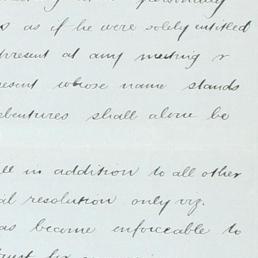 personally
as if he were solely entitled
present at any meeting &
resent whose name stands
ebentures shall alone be
ll in addition to all other
al resolution only viz.
as become enforceable to